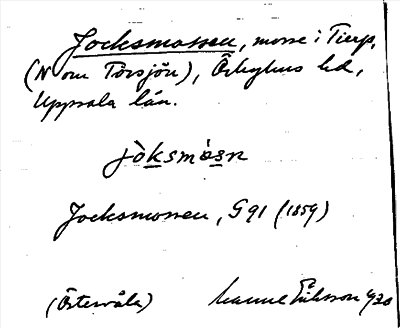 Jocksmossen, mosse i Tierp,
(N om Törsjön), Örbyhus hd,
Uppsala län.
jòksmòsn
Jocksmossen, G91 (1859)
(Östervåla) Manne Eriksson 1930